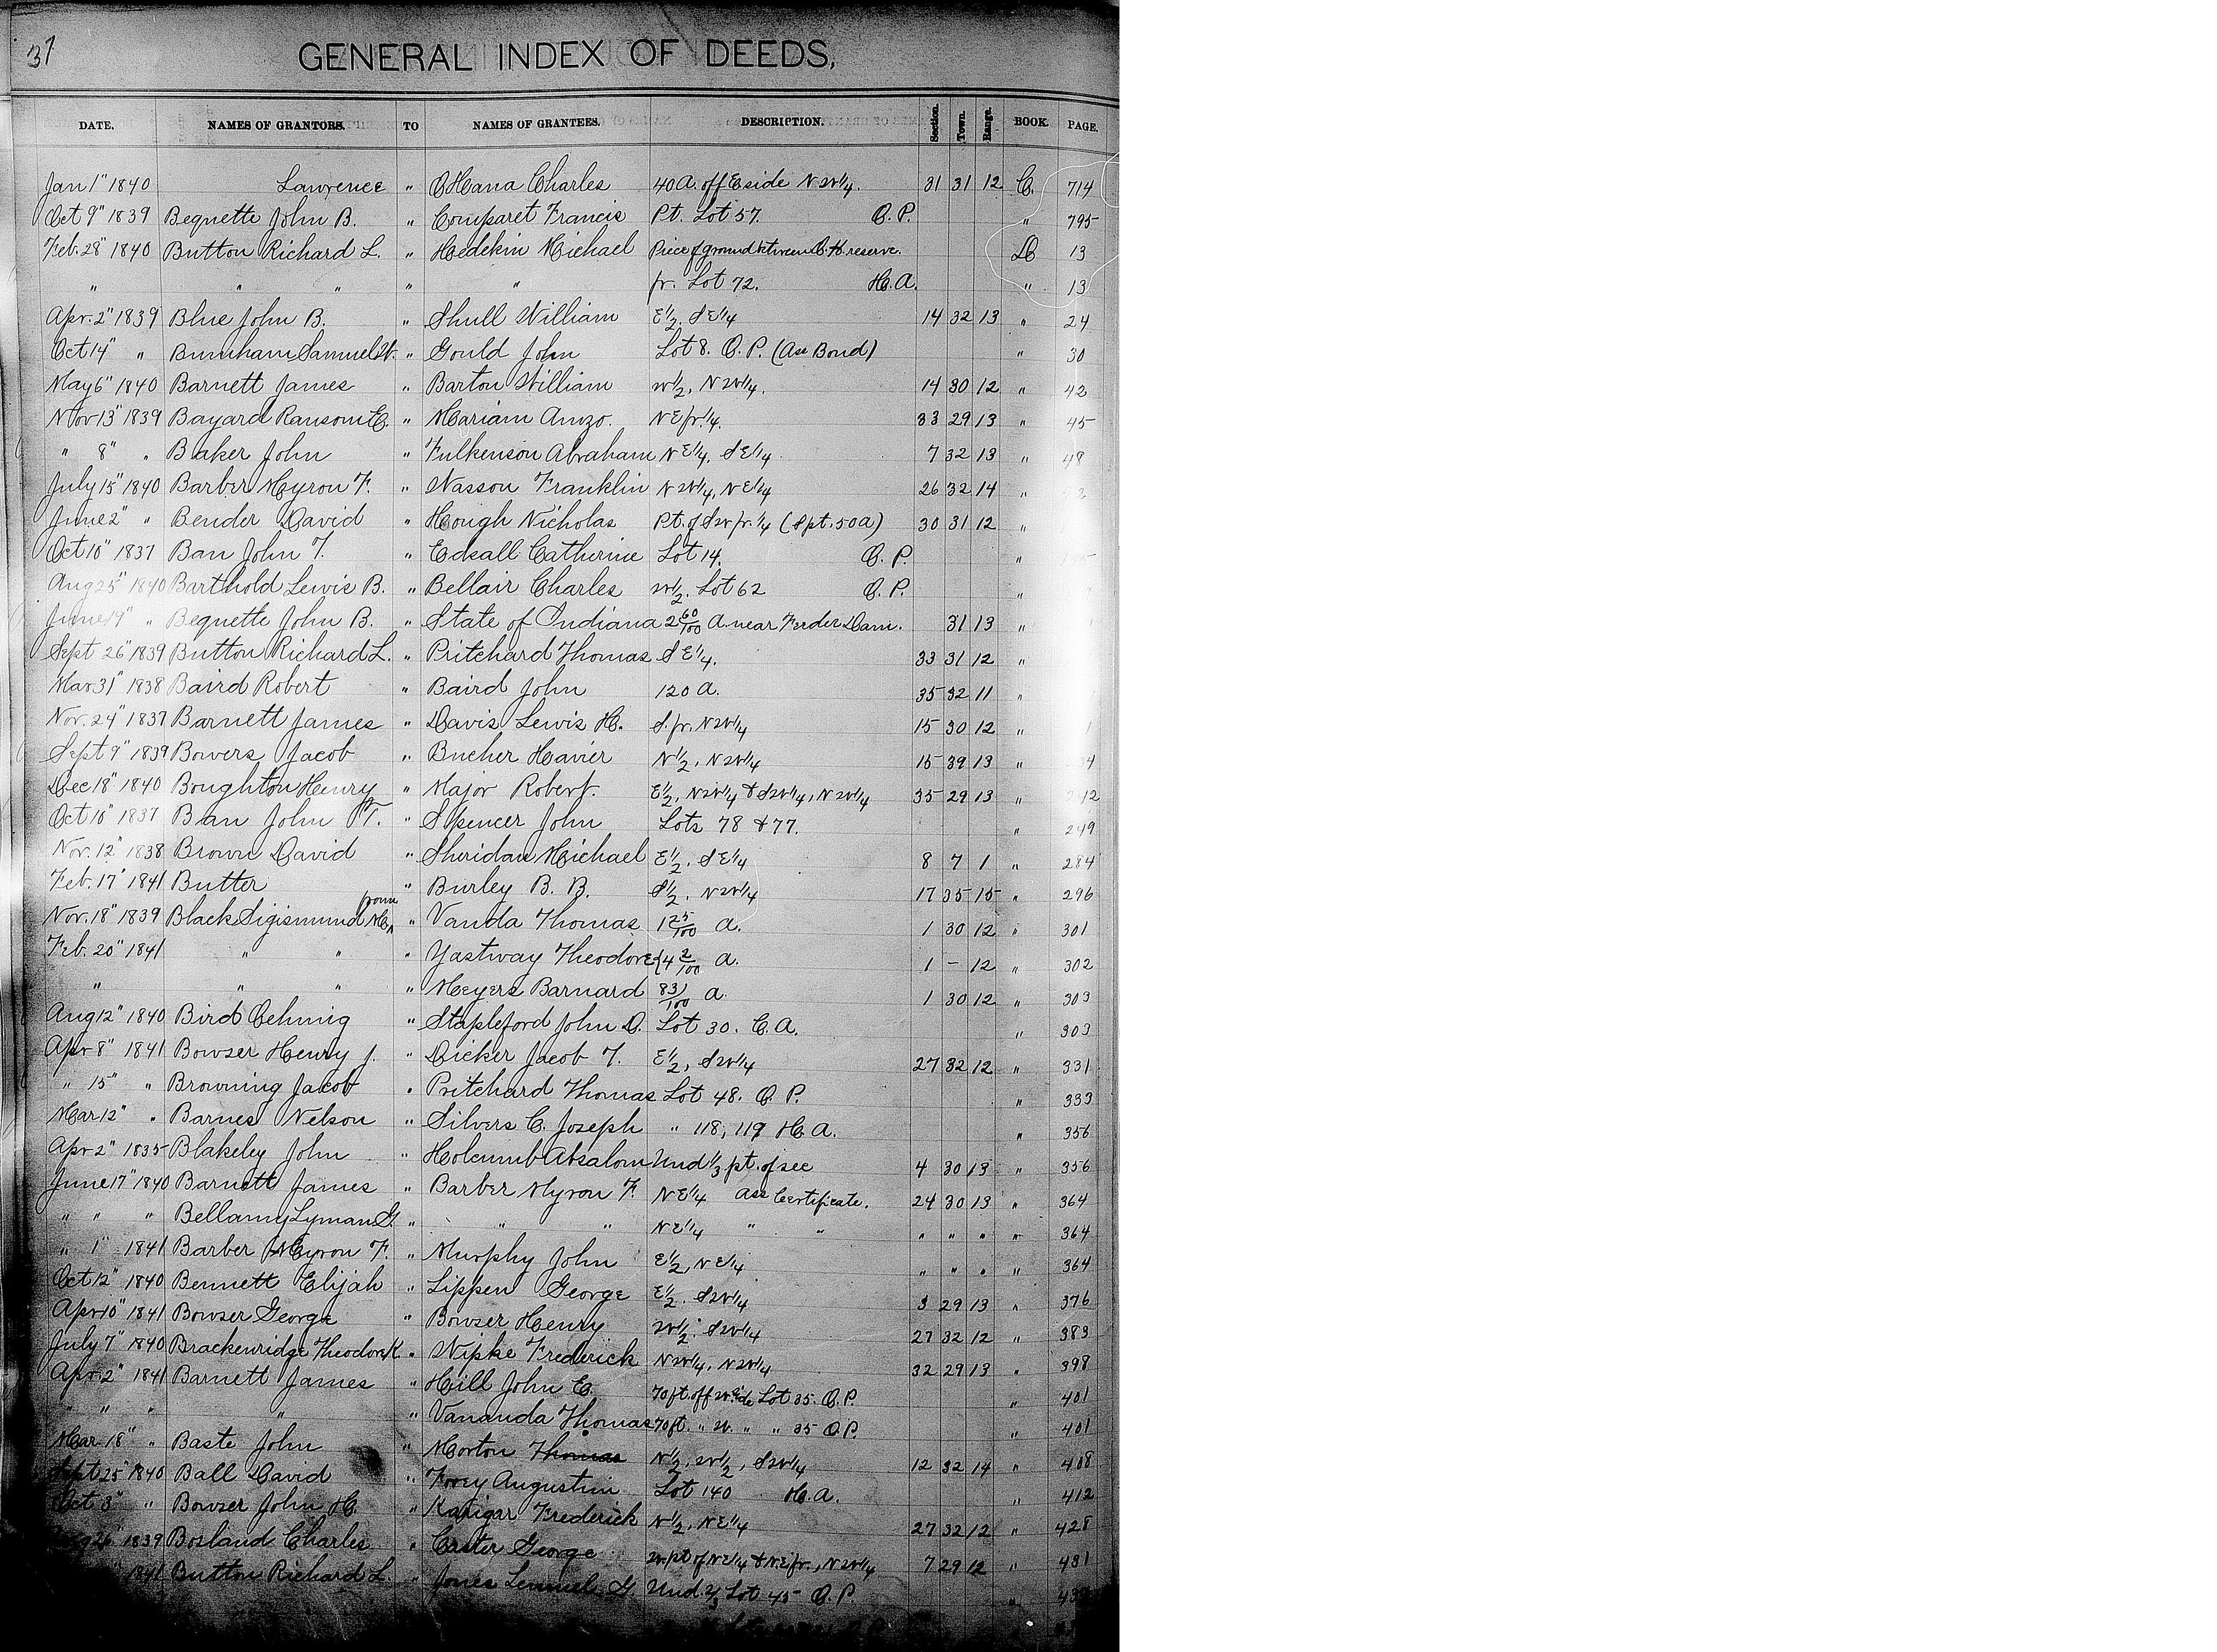 37
GENERAL INDEX OF DEEDS.
DATE. NAMES OF GRANTORS. TO NAMES OF GRANTEES. DESCRIPTION. Section. Town. Range. BOOK. PAGE.
Jan 1" 1840 Lawrence " O'Hara Charles 40 A. off E side N W 1/4. 31 31 12 C. 714
Oct 9" 1839 Bequette John B. " Comparet Francis Pt. Lot 57. O.P. " 795
Feb. 28" 1840 Button Richard L. " Hedekin Michael Piece of ground between C.H. reserve. D 13
" " " " " fr. Lot 72. H.A. " 13
Apr. 2" 1839 Blue John B. " Shull William E 1/2. S E 1/4 14 32 13 " 24
Oct 14" " Burnham Samuel W. " Gould John Lot 8. O.P. (Ass Bond) " 30
May 6" 1840 Barnett James " Barton William W 1/2, N W 1/4. 14 30 12 " 42
Nov 13" 1839 Bayard Ransom E. " Mariam Amzo. N E fr. 1/4. 33 29 13 " 45
" 8" " Baker John " Fulkenson Abraham N E 1/4. S E 1/4 7 32 13 " 48
July 15" 1840 Barber Myron F. " Wasson Franklin N W 1/4, N E 1/4 26 32 14 "
June 2" " Bender David " Hough Nicholas Pt. of S W fr. 1/4 (Spt. 50 a) 30 31 12 "
Oct 10" 1837 Barr John T. " Edsall Catherine Lot 14. O.P. "
Aug 25" 1840 Barthold Lewis B. " Bellair Charles W 1/2. Lot 62 O.P. "
June 19" " Bequette John B. " State of Indiana 2 60/100 A near Feeder Dam. 31 13 "
Sept 26" 1839 Button Richard L. " Pritchard Thomas S E 1/4. 33 31 12 "
Mar 31" 1838 Baird Robert " Baird John 120 A. 35 32 11 "
Nov. 24" 1837 Barnett James " Davis Lewis H. S. fr. N W 1/4 15 30 12 "
Sept 9" 1839 Bowers Jacob " Bucher Havier N 1/2, N W 1/4 15 39 13 "
Dec 18" 1840 Boughton Henry " Major Robert. E 1/2, N W 1/4 & S W 1/4, N W 1/4 35 29 13 " 212
Oct 10" 1837 Barr John T. " Spencer John Lots 78 & 77. " 249
Nov. 12" 1838 Brown David " Sheridan Michael E 1/2. S E 1/4 8 7 1 " 284
Feb. 17" 1841 Butter " Burley B. B. S 1/2. N W 1/4 17 35 15 " 296
Nov. 18" 1839 Black Sigismund M. from " Vanda Thomas 1 25/100 a. 1 30 12 " 301
Feb. 20" 1841 " " " Yastway Theodore 14 2/100 a. 1 - 12 " 302
" " " " Meyers Barnard 83/100 a. 1 30 12 " 303
Aug 12" 1840 Bird Oehmig " Stapleford John D. Lot 30. C.A. " 303
Apr 8" 1841 Bowser Henry J. " Dicker Jacob T. E 1/2, S W 1/4 27 32 12 " 331
" 15" " Browning Jacob " Pritchard Thomas Lot 48. O.P. " 333
Mar 12" " Barnes Nelson " Silvers C. Joseph " 118, 119 H.A. " 356
Apr 2" 1835 Blakeley John " Holcumb Absalom Und 1/3 pt. of sec 4 30 13 " 356
June 17" 1840 Barnett James " Barber Myron F. N E 1/4 Ass Certificate. 24 30 13 " 364
" " " Bellamy Lyman G. " " " N E 1/4 " " " " " " 364
" 1" 1841 Barber Myron F. " Murphy John E 1/2, N E 1/4 " " " " 364
Oct 12" 1840 Bennett Elijah " Lippen George E 1/2. S W 1/4 3 29 13 " 376
Apr 10" 1841 Bowser George " Bowser Henry W 1/2. S W 1/4 27 32 12 " 383
July 7" 1840 Brackenridge Theodore K. " Wipke Frederick N W 1/4, N W 1/4 32 29 13 " 398
Apr 2" 1841 Barnett James " Hill John E. 70 ft. off W side Lot 35. O.P. " 401
" " " " " Vananda Thomas 70 ft. " W. " " 35 O.P. " 401
Mar 18" " Baste John " Morton Thomas N 1/2, W 1/2, S W 1/4 12 32 14 " 408
Sept 25" 1840 Ball David " Forey Augustin Lot 140 H.A. " 412
Oct 3" " Bowser John H. " Katigar Frederick N 1/2, N E 1/4 27 32 12 " 428
26" 1839 Bosland Charles " Carter George W. pt of N E 1/4 & N E fr., N W 1/4 7 29 12 " 431
1841 Button Richard L " Jones Lemuel G. Und. 2/3 Lot 45 O.P. "